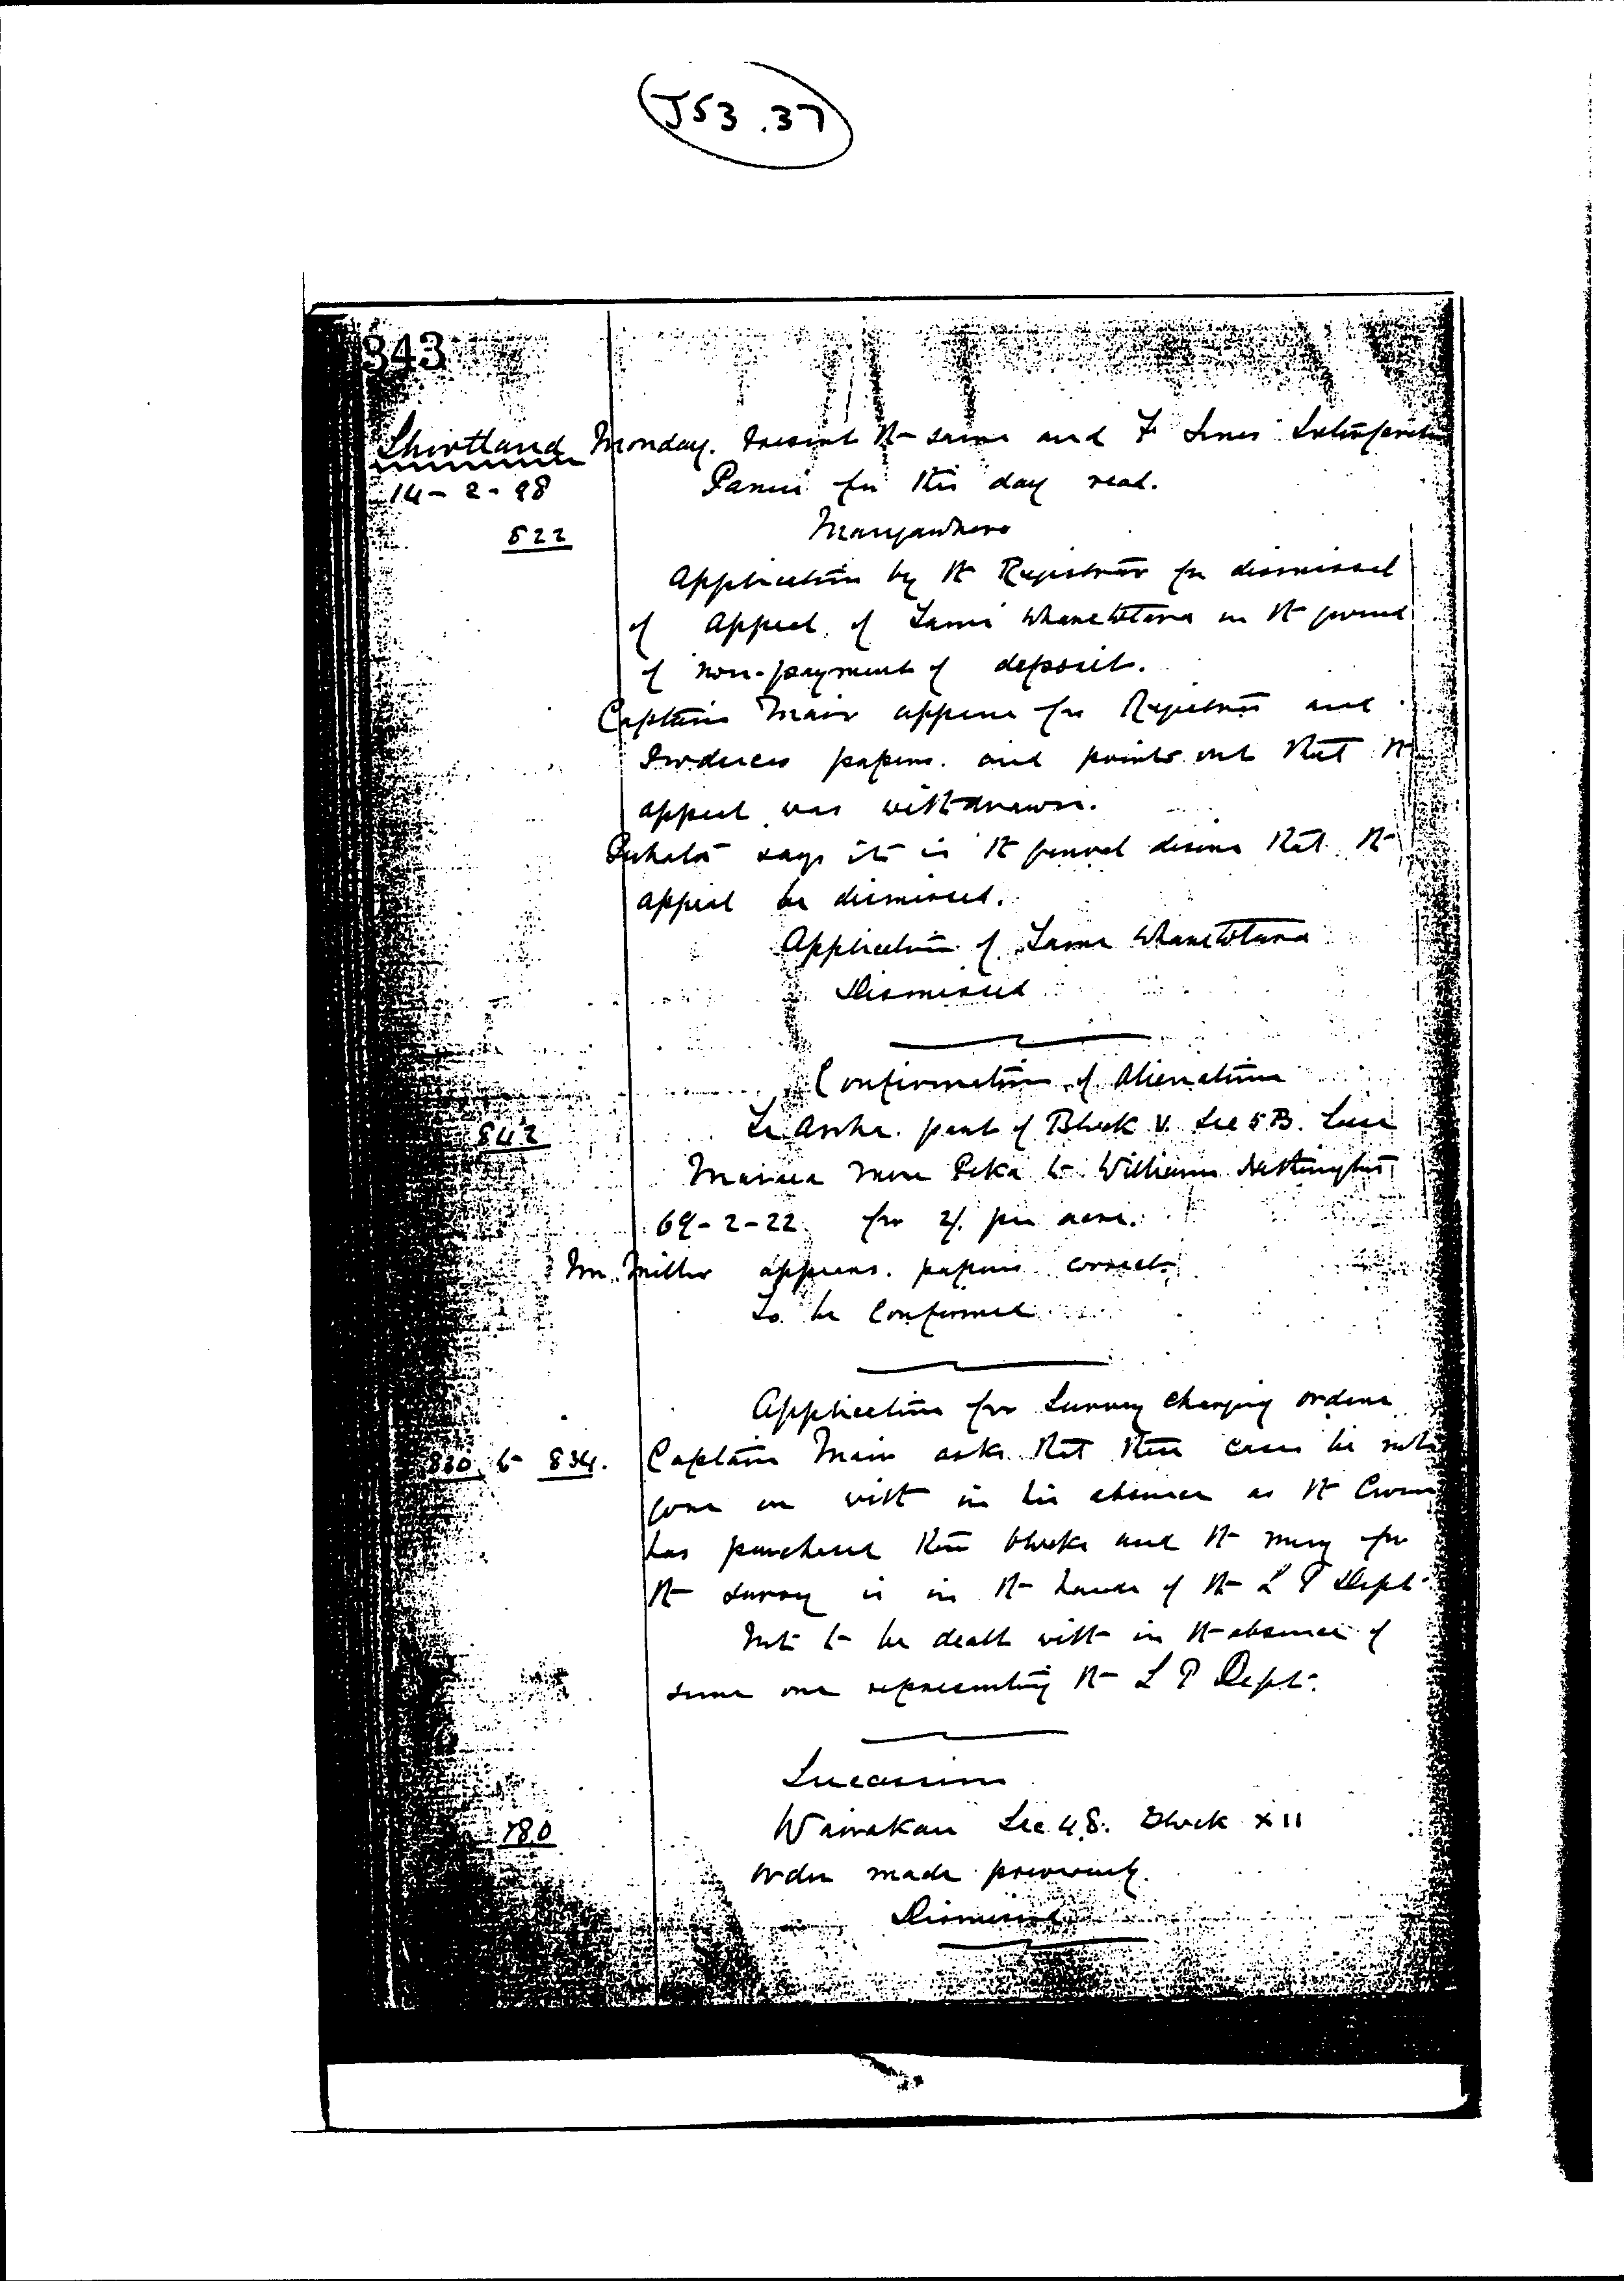 J53.37
343
Shortland Monday. Present the same and F Interpreter
14-2-98 Panui for this day read.
522 Mangawhero
Application by the Registrar for dismissal
of Appeal of in the ground
of non-payment of deposit.
Captain Mair appears for Registrar and
produces papers. and points out that the
appeal was withdrawn.
says it is the general desire that the
appeal be dismissed.
Application of
Dismissed
Confirmation of Alienation
842 Te Aroha. part of Block V. Sec 5B. Lease
Mere Peka to William
69-2-22 for 2/. per acre.
Mr Miller appears. papers correct.
To be Confirmed
Application for Survey Charging orders
830 to 834. Captain Mair asks that these cases be not
gone on with in his absence as the Crown
has purchased these blocks and the money for
the survey is in the hands of the L P Dept.
Not to be dealt with in the absence of
some one representing the L P Dept.
Succession
780 Wairakau Sec 48. Block XII
order made previously.
Dismissed